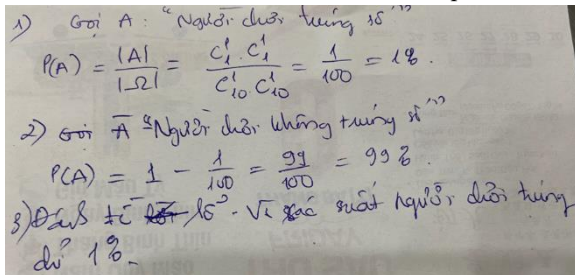 1) Gọi A : "Người chơi trúng số"
P(A) = |A| / |Ω| = C₁¹ . C₁¹ / C₁₀¹ . C₁₀¹ = 1/100 = 1% .
2) Gọi Ā "Người chơi không trúng số"
P(A) = 1 - 1/100 = 99/100 = 99% .
3) số . Vì xác suất người chơi trúng
chỉ 1% .